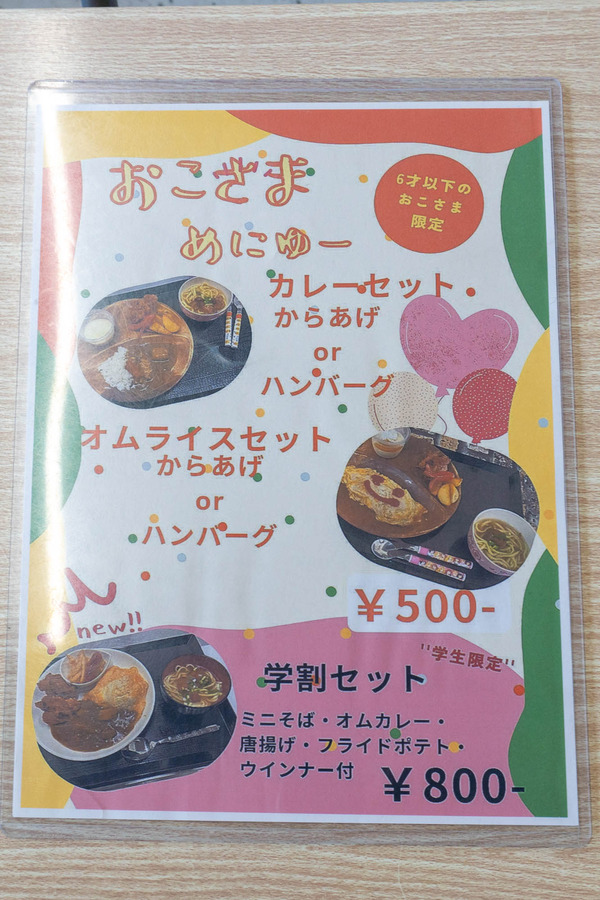 おこさま
めにゅー
6才以下の
おこさま
限定
カレーセット
からあげ
or
ハンバーグ
オムライスセット
からあげ
or
ハンバーグ
￥500-
new!!
"学生限定"
学割セット
ミニそば・オムカレー・
唐揚げ・フライドポテト・
ウインナー付
￥800-